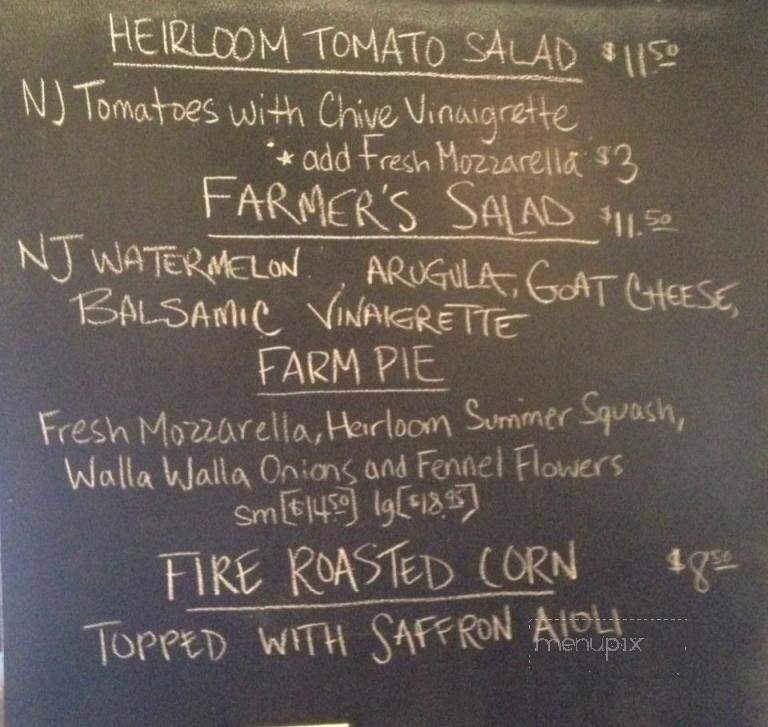 HEIRLOOM TOMATO SALAD $11.50
NJ Tomatoes with Chive Vinaigrette
*★ add Fresh Mozzarella $3
FARMER'S SALAD $11.50
NJ WATERMELON, ARUGULA, GOAT CHEESE,
BALSAMIC VINAIGRETTE
FARM PIE
Fresh Mozzarella, Heirloom Summer Squash,
Walla Walla Onions and Fennel Flowers
sm[$14.50] lg[$18.95]
FIRE ROASTED CORN $8.50
TOPPED WITH SAFFRON AIOLI
menupix